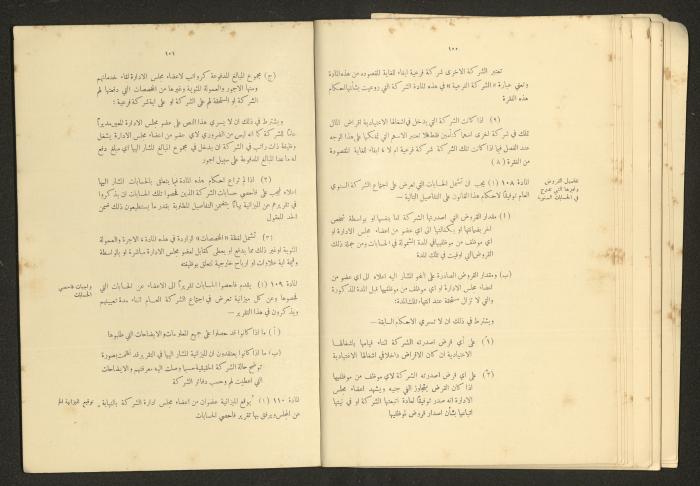 ١٥٥
تعتبر الشركة الاخرى شركة فرعية ايفاء للغاية المقصودة من هذه المادة
وتعني عبارة «الشركة الفرعية» في هذه المادة الشركة التي روعيت بشأنها احكام
هذه الفقرة
(٩) اذا كانت الشركة التي يدخل في اشغالها الاعتيادية اقراض المال
تملك في شركة اخرى اسهما كتأمين فقط فلا تعتبر الاسهم التي تملكها على هذا الوجه
عند الفصل فيما اذا كانت تلك الشركة شركة فرعية ام لا، ايفاء للغاية المقصودة
من الفقرة (٨)
تفاصيل القروض
وغيرها التي تدرج
في الحسابات السنوية
المادة ١٠٨ (١) يجب ان تشمل الحسابات التي تعرض على اجتماع الشركة السنوي
العام توفيقًا لاحكام هذا القانون على التفاصيل التالية —
(١) مقدار القروض التي اصدرتها الشركة اما بنفسها او بواسطة شخص
آخر بضمانتها او بكفالتها الى اي عضو من اعضاء مجلس الادارة او
اي موظف من موظفيها في المدة المشمولة في الحسابات ومن جملة ذلك
القروض التي اوفيت في تلك المدة
(ب) ومقدار القروض الصادرة على النحو المشار اليه اعلاه الى اي عضو من
اعضاء مجلس الادارة او اي موظف من موظفيها قبل المدة المذكورة
والتي لا تزال مستحقة عند انتهاء تلك المدة:
ويشترط في ذلك ان لا تسري الاحكام السابقة —
(١) على أي قرض اصدرته الشركة اثناء قيامها باشغالها
الاعتيادية ان كان الاقراض داخلا في اشغالها الاعتيادية
(٢) على أي قرض اصدرته الشركة لاي موظف من موظفيها
اذا كان القرض يتجاوز الفي جنيه ويشهد اعضاء مجلس
الادارة انه صدر توفيقًا لعادة اتبعتها الشركة او في نيتها
اتباعها بشأن اصدار قروض لموظفيها
١٥٦
(ج) مجموع المبالغ المدفوعة كرواتب لاعضاء مجلس الادارة لقاء خدماتهم
ومنها الاجور والعمولة المئوية وغيرها من المخصصات التي دفعتها لهم
الشركة او المستحقة لهم على الشركة او على اية شركة فرعية:
ويشترط في ذلك ان لا يسري هذا النص على عضو مجلس الادارة المعين مديرًا
عامًا للشركة كما انه ليس من الضروري لاي عضو من اعضاء مجلس الادارة يشغل
وظيفة ذات راتب في الشركة ان يدخل في مجموع المبالغ المشار اليها اي مبلغ دفع
له ما عدا المبالغ المدفوعة على سبيل اجور
(٢) اذا لم تراع احكام هذه المادة فيما يتعلق بالحسابات المشار اليها
اعلاه فيجب على فاحصي حسابات الشركة الذين فحصوا تلك الحسابات ان يذكروا
في تقريرهم عن الميزانية بيانًا يتضمن التفاصيل المطلوبة بقدر ما يستطيعون ذلك ضمن
الحد المعقول
(٣) تشمل لفظة «المخصصات» الواردة في هذه المادة، الاجرة والعمولة
المئوية او غير ذلك مما يدفع او يعطى كمقابل لعضو مجلس الادارة مباشرة او بالواسطة
واية علاوات او ارباح خارجية تتعلق بوظيفته
واجبات فاحصي
الحسابات
المادة ١٠٩ (١) يقدم فاحصو الحسابات تقريرًا الى الاعضاء عن الحسابات التي
فحصوها وعن كل ميزانية تعرض في اجتماع الشركة العام اثناء مدة تعيينهم
ويذكرون في هذا التقرير —
(أ) ما اذا كانوا قد حصلوا على جميع المعلومات والايضاحات التي طلبوها
(ب) ما اذا كانوا يعتقدون ان الميزانية المشار اليها في التقرير قد نظمت بصورة
توضح حالة الشركة الحقيقية حسبما وصلت اليه معرفتهم والايضاحات
التي اعطيت لهم وحسب دفاتر الشركة
توقيع الميزانية الخ
المادة ١١٠ (١) يوقع الميزانية عضوان من اعضاء مجلس ادارة الشركة بالنيابة
عن المجلس ويرفق بها تقرير فاحصي الحسابات